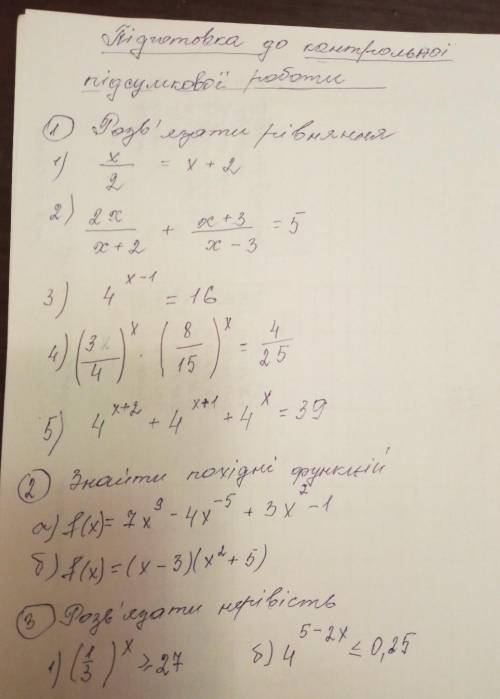 Підготовка до контрольної
підсумкової роботи
① Розв'язати рівняння
1) x/2 = x + 2
2) 2x/(x+2) + (x+3)/(x−3) = 5
3) 4^(x−1) = 16
4) (3/4)^x · (8/15)^x = 4/25
5) 4^(x+2) + 4^(x+1) + 4^x = 39
② Знайти похідні функцій
а) f(x) = 7x^9 − 4x^(−5) + 3x^2 − 1
б) f(x) = (x − 3)(x² + 5)
③ Розв'язати нерівність
1) (1/3)^x ≥ 27 б) 4^(5−2x) ≤ 0,25